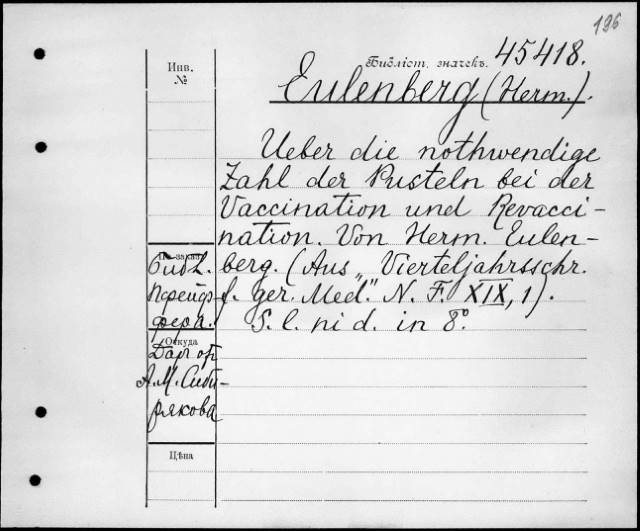 126
Инв.
№
Библіот. значекъ. 45418.
Eulenberg (Herm.).
Ueber die nothwendige
Zahl der Pusteln bei der
Vaccination und Revacci-
nation. Von Herm. Eulen-
berg. (Aus „Vierteljahrsschr.
f. ger. Med." N. F. XIX, 1).
S. l. ni d. in 8°.
Библ.
Прейдз
фера.
Откуда
Даръ от
А. М. Сиби-
рякова
Цѣна